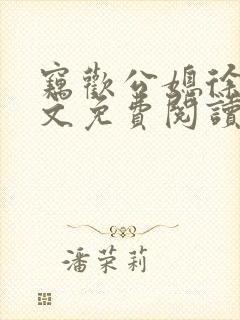 竊歡公媳徐
文免費閱讀
潘荣莉